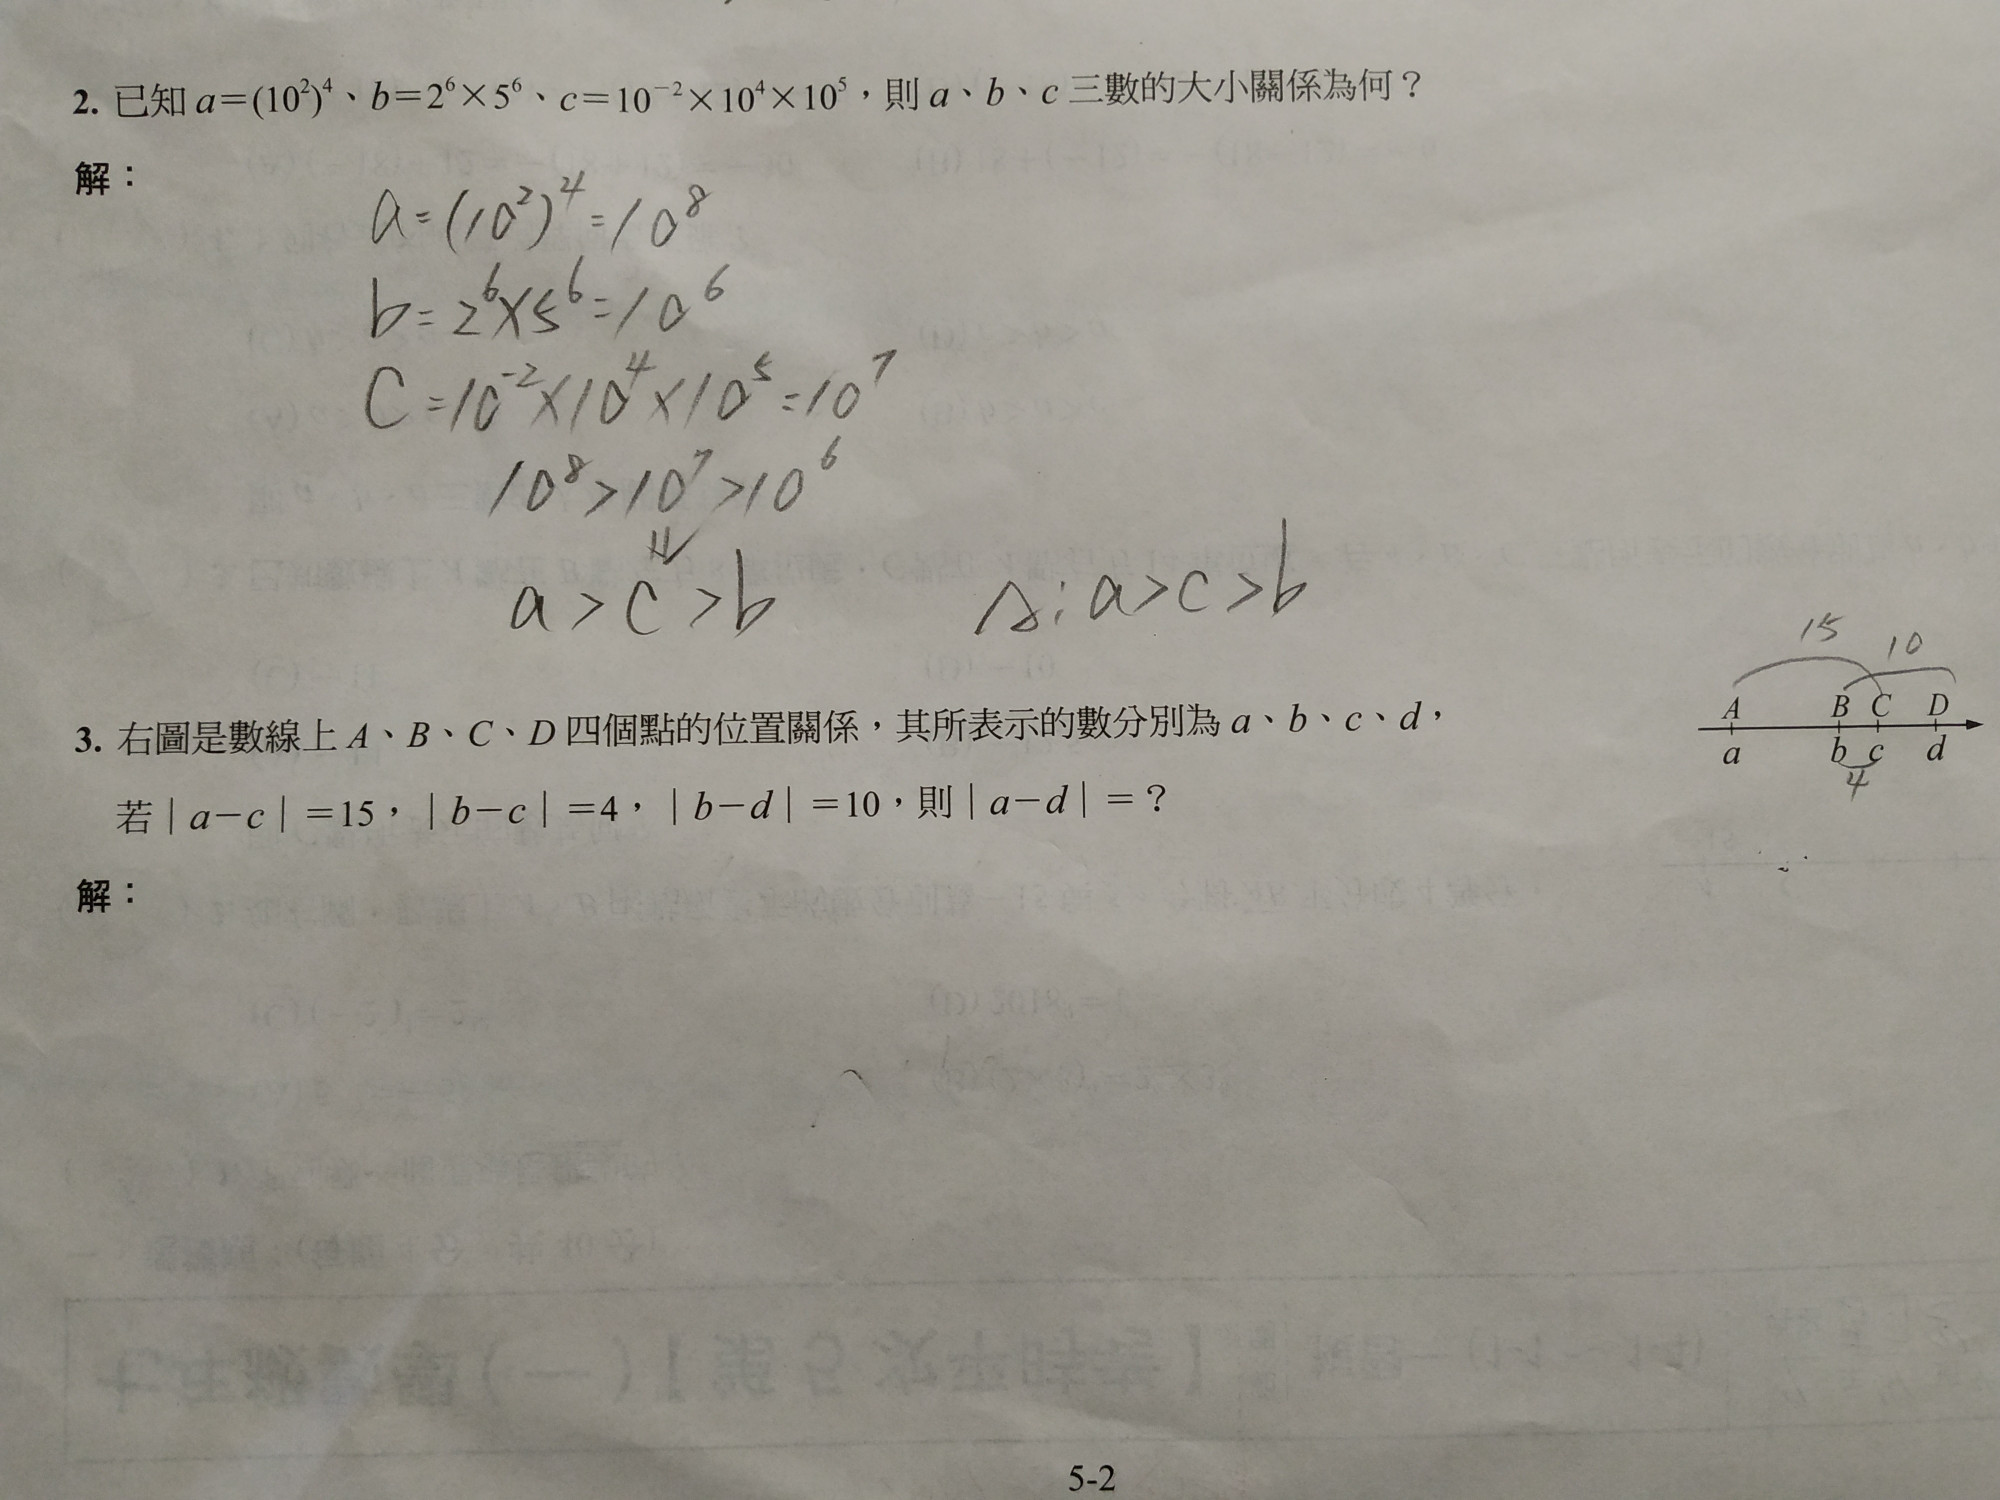 2. 已知 a=(10²)⁴、b=2⁶×5⁶、c=10⁻²×10⁴×10⁵，則 a、b、c 三數的大小關係為何？
解：
a=(10²)⁴=10⁸
b=2⁶×5⁶=10⁶
C=10⁻²×10⁴×10⁵=10⁷
10⁸>10⁷>10⁶
⇓
a>c>b
A:a>c>b
15
10
3. 右圖是數線上 A、B、C、D 四個點的位置關係，其所表示的數分別為 a、b、c、d，
A B C D
a b c d
4
若|a-c|=15，|b-c|=4，|b-d|=10，則|a-d|=？
解：
5-2